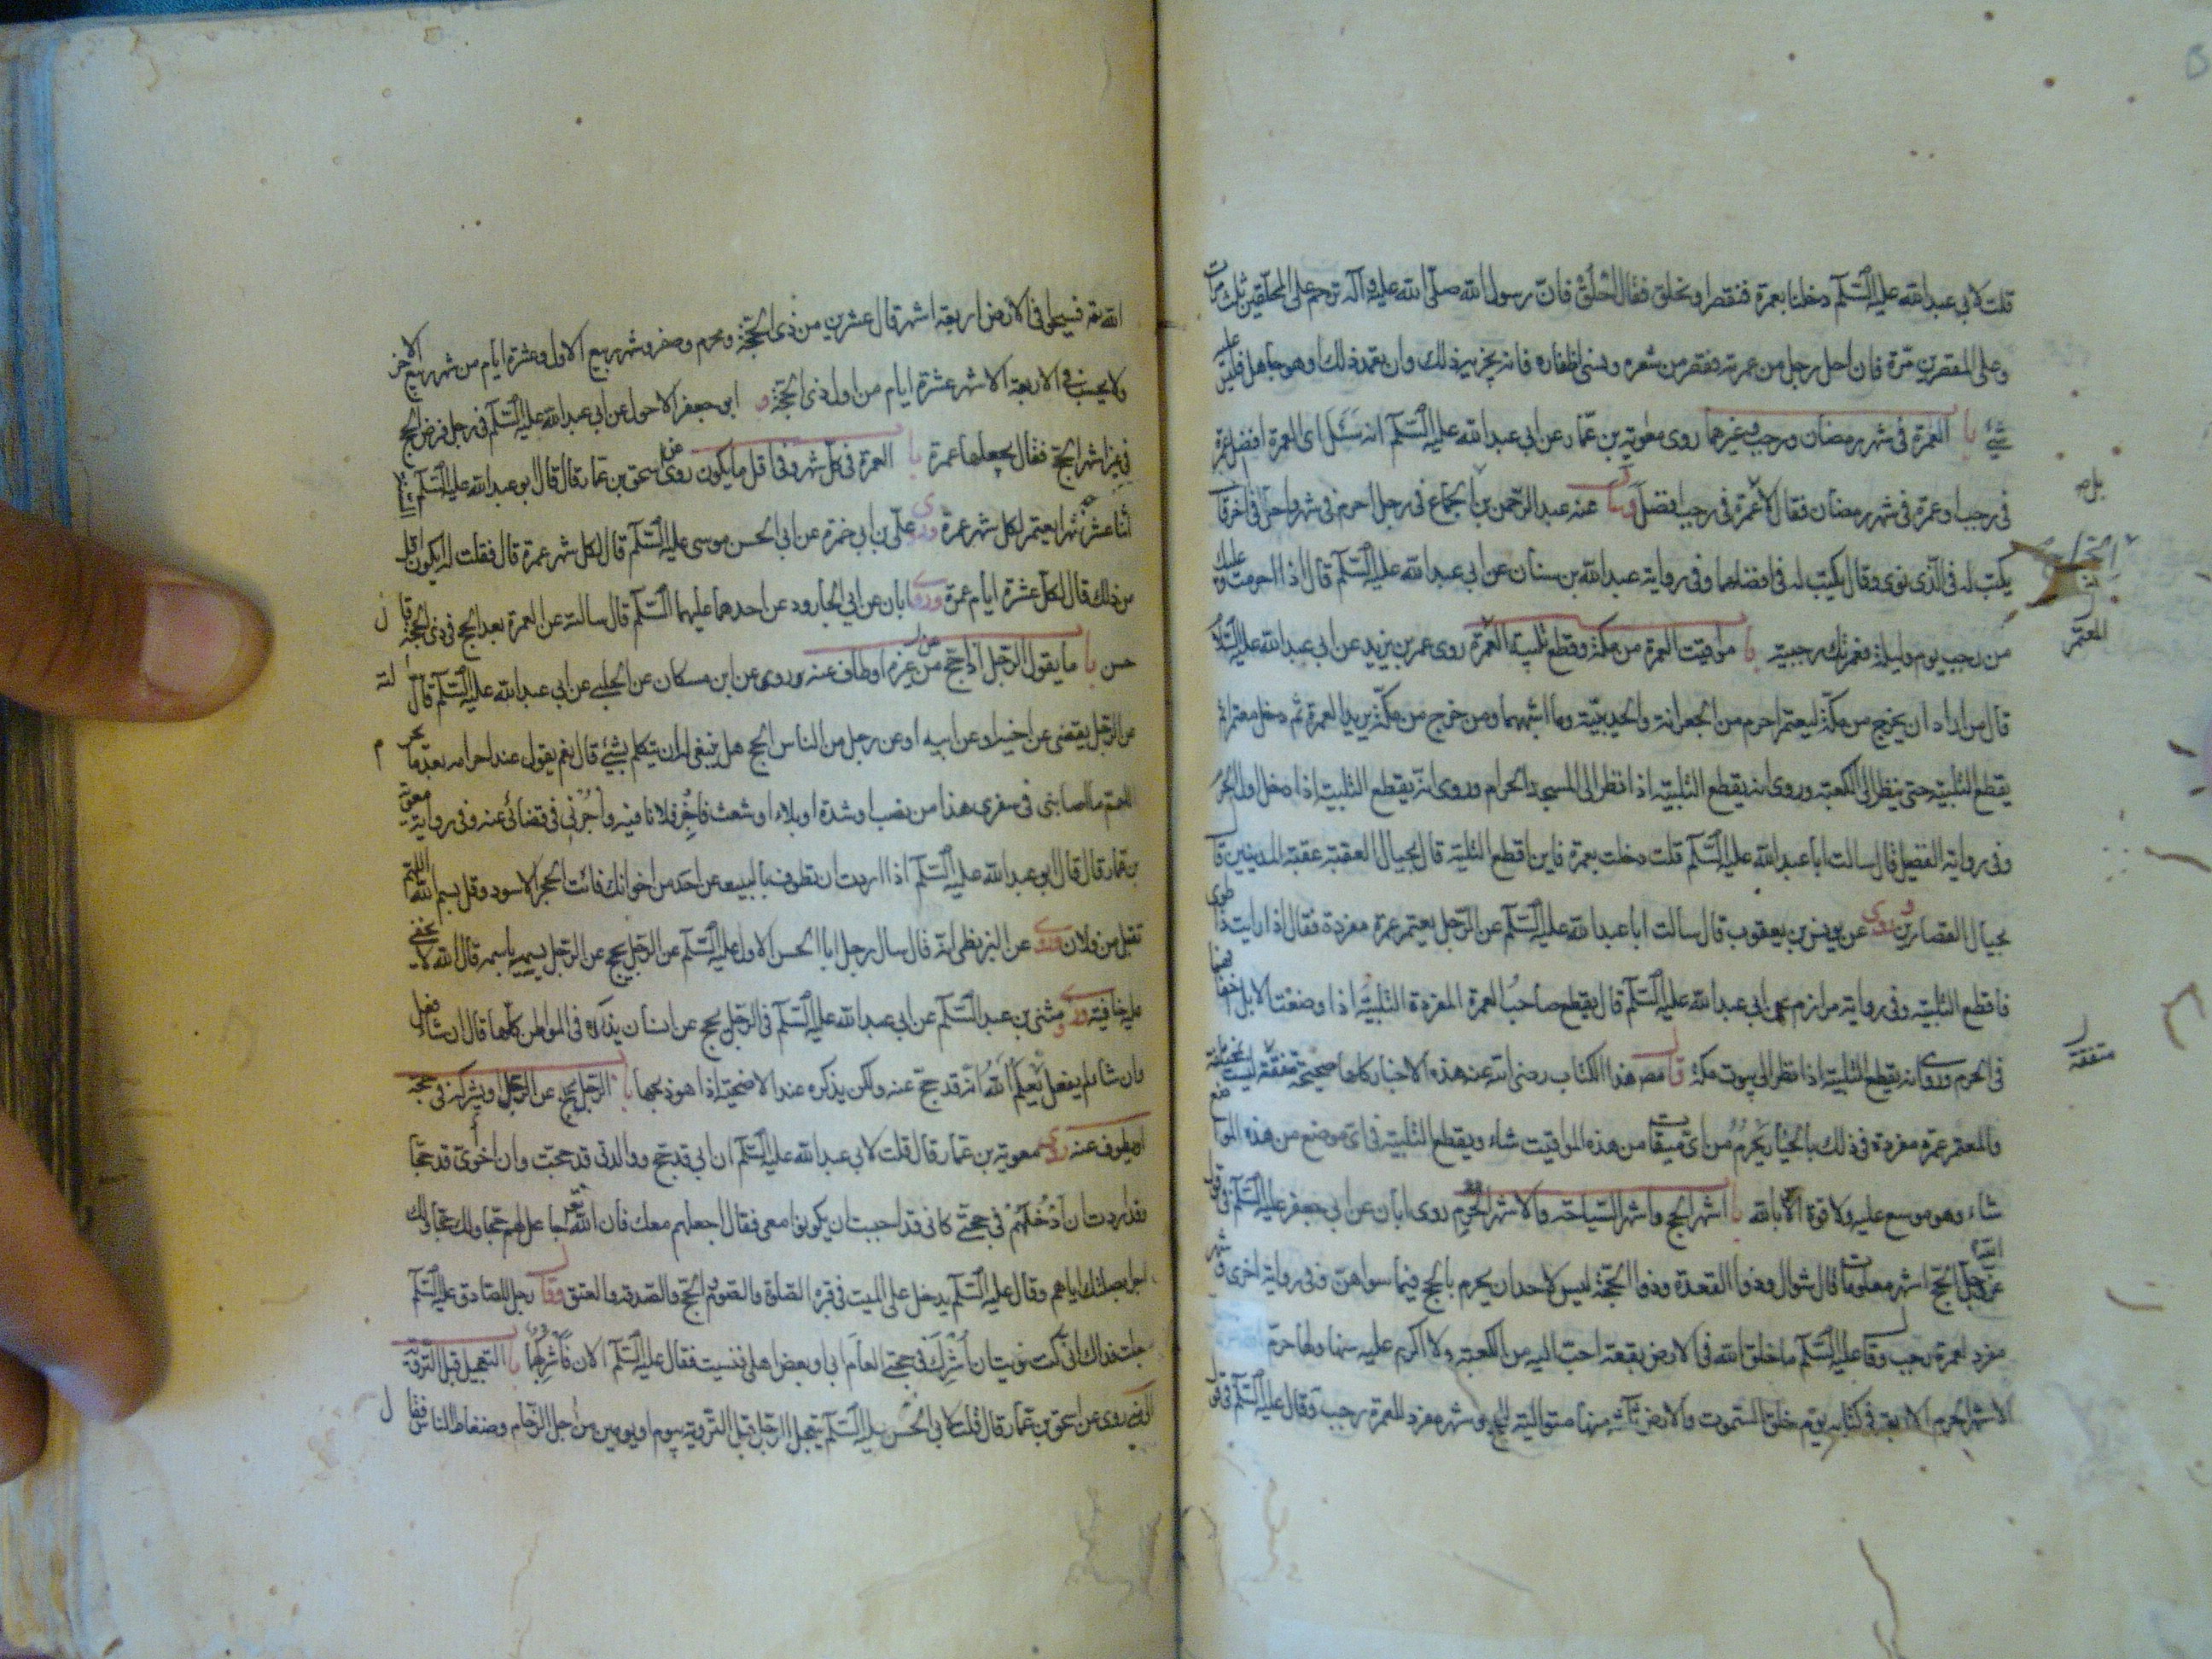 قلت لابی عبد الله علیه السلم دخلنا بعمرة فنقصر او نحلق فقال احلق فان رسول الله صلی الله علیه وآله ترحم علی المحلقین ثلث مرات
وعلی المقصرین مرة فان احل رجل من عمرته فقصر من شعره ونسی اظفاره فانه یجزیه ذلك وان تعمد ذلك وهو جاهل فلیس علیه
شئ با العمرة فی شهر رمضان ورجب وغیرهما روی معویة بن عمار عن ابی عبد الله علیه السلم انه سئل ای العمرة افضل عمرة
فی رجب او عمرة فی شهر رمضان فقال لا عمرة فی رجب افضل عنه عبد الرحمن بن الحجاج فی رجل احرم فی شهر واحل فی اخر قال
یکتب له فی الذی نوی وقال یکتب له فی افضلهما وفی روایة عبد الله بن سنان عن ابی عبد الله علیه السلم قال اذا احرمت وعلیك
من رجب یوم ولیلة فعمرتك رجبیة با مواقیت العمرة من مکة وقطع تلبیة العمرة روی عمر بن یزید عن ابی عبد الله علیه السلم
قال من اراد ان یخرج من مکة لیعتمر احرم من الجعرانة والحدیبیة وما اشبههما ومن خرج من مکة یرید العمرة ثم دخل معتمرا لم
یقطع التلبیة حتی ینظر الی الکعبة وروی انه یقطع التلبیة اذا نظر الی المسجد الحرام وروی انه یقطع التلبیة اذا دخل اول الحرم
وفی روایة الفضیل قال سالت ابا عبد الله علیه السلم قلت دخلت بعمرة فاین اقطع التلبیة قال بحیال العقبة عقبة المدنیین قلت
بحیال القصارین وروی عن یونس بن یعقوب قال سالت ابا عبد الله علیه السلم عن الرجل یعتمر عمرة مفردة فقال اذا رایت ذا طوی
فاقطع التلبیة وفی روایة مرازم عن ابی عبد الله علیه السلم قال یقطع صاحب العمرة المفردة التلبیة اذا وضعت الابل اخفافها
فی الحرم وروی انه یقطع التلبیة اذا نظر الی بیوت مکة قال مصنف هذا الکتاب رضی الله عنه هذه الاخبار کلها صحیحة متفقة لیست بمختلفة
والمعتمر عمرة مفردة فی ذلك بالخیار یحرم من ای میقات من هذه المواقیت شاء ویقطع التلبیة فی ای موضع من هذه المواضع
شاء وهو موسع علیه ولا قوة الا بالله با اشهر الحج واشهر السیاحة والاشهر الحرم روی ابان عن ابی جعفر علیه السلم فی قول
الله عز وجل الحج اشهر معلومات قال شوال وذو القعدة وذو الحجة لیس لاحد ان یحرم بالحج فیما سواهن وفی روایة اخری وشهر
مفرد لعمرة رجب وقال علیه السلم ما خلق الله فی الارض بقعة احب الیه من الکعبة ولا اکرم علیه منها ولها حرم
الاشهر الحرم الاربعة فی کتابه یوم خلق السموت والارض ثلثة منها متوالیة للحج وشهر مفرد للعمرة رجب وقال علیه السلم فی قول
المعتمر
متفقة
الله تعه فسیحوا فی الارض اربعة اشهر قال عشرین من ذی الحجة ومحرم وصفر وشهر ربیع الاول وعشرة ایام من شهر ربیع الاخر
ولا یحسب فی الاربعة الاشهر عشرة ایام من اول ذی الحجة و ابو جعفر الاحول عن ابی عبد الله علیه السلم فی رجل فرض الحج
فی غیر اشهر الحج فقال یجعلها عمرة با العمرة فی کل شهر وفی اقل ما یکون روی عن اسحق بن عمار قال قال ابو عبد الله علیه السلم السنة
اثنا عشر شهرا یعتمر لکل شهر عمرة وروی علی بن ابی حمزة عن ابی الحسن موسی علیه السلم قال لکل شهر عمرة قال فقلت له ایکون اقل
من ذلك قال لکل عشرة ایام عمرة وروی ابان عن ابی الجارود عن احدهما علیهما السلم قال سالته عن العمرة بعد الحج فی ذی الحجة قال
حسن با ما یقول الرجل اذا حج عن غیره او طاف عنه وروی عن ابن مسکان عن الحلبی عن ابی عبد الله علیه السلم قال قلت له
عن الرجل یقضی عن اخیه او عن ابیه او عن رجل من الناس الحج هل ینبغی له ان یتکلم بشئ قال نعم یقول عند احرامه بعد ما یحرم
اللهم ما اصابنی فی سفری هذا من نصب او شدة او بلاء او شعث فاجر فلانا فیه واجرنی فی قضائی عنه وفی روایة معویة
بن عمار قال قال ابو عبد الله علیه السلم اذا اردت ان تطوف بالبیت عن احد من اخوانك فائت الحجر الاسود وقل بسم الله اللهم
تقبل من فلان وروی عن البزنطی انه قال سال رجل ابا الحسن الاول علیه السلم عن الرجل یحج عن الرجل یسمیه باسمه قال الله لا یخفی
علیه خافیة وروی مثنی بن عبد السلم عن ابی عبد الله علیه السلم فی الرجل یحج عن انسان یذکره فی المواطن کلها قال ان شاء فعل
وان شاء لم یفعل یعلم الله انه قد حج عنه ولکن یذکره عند الاضحیة اذا هو ذبحها با الرجل یحج عن الرجل او یشرکه فی حجه
او یطوف عنه روی معویة بن عمار قال قلت لابی عبد الله علیه السلم ان ابی قد حج ووالدتی قد حجت وان اخوی قد حجا
وقد اردت ان ادخلهم فی حجتی کانی قد احببت ان یکونوا معی فقال اجعلهم معك فان الله جاعل لهم حجا ولك حجا ولك
اجرا بصلتك ایاهم وقال علیه السلم یدخل علی المیت فی قبره الصلوة والصوم والحج والصدقة والعتق وقال رجل للصادق علیه السلم
جعلت فداك انی کنت نویت ان اشرك فی حجتی العام ابی او بعض اهلی فنسیت فقال علیه السلم الان فاشرکهما با التعجیل قبل الترویة
الی منی روی عن اسحق بن عمار قال قلت لابی الحسن علیه السلم یتعجل الرجل قبل الترویة بیوم او یومین من اجل الزحام وضغاط الناس فقال